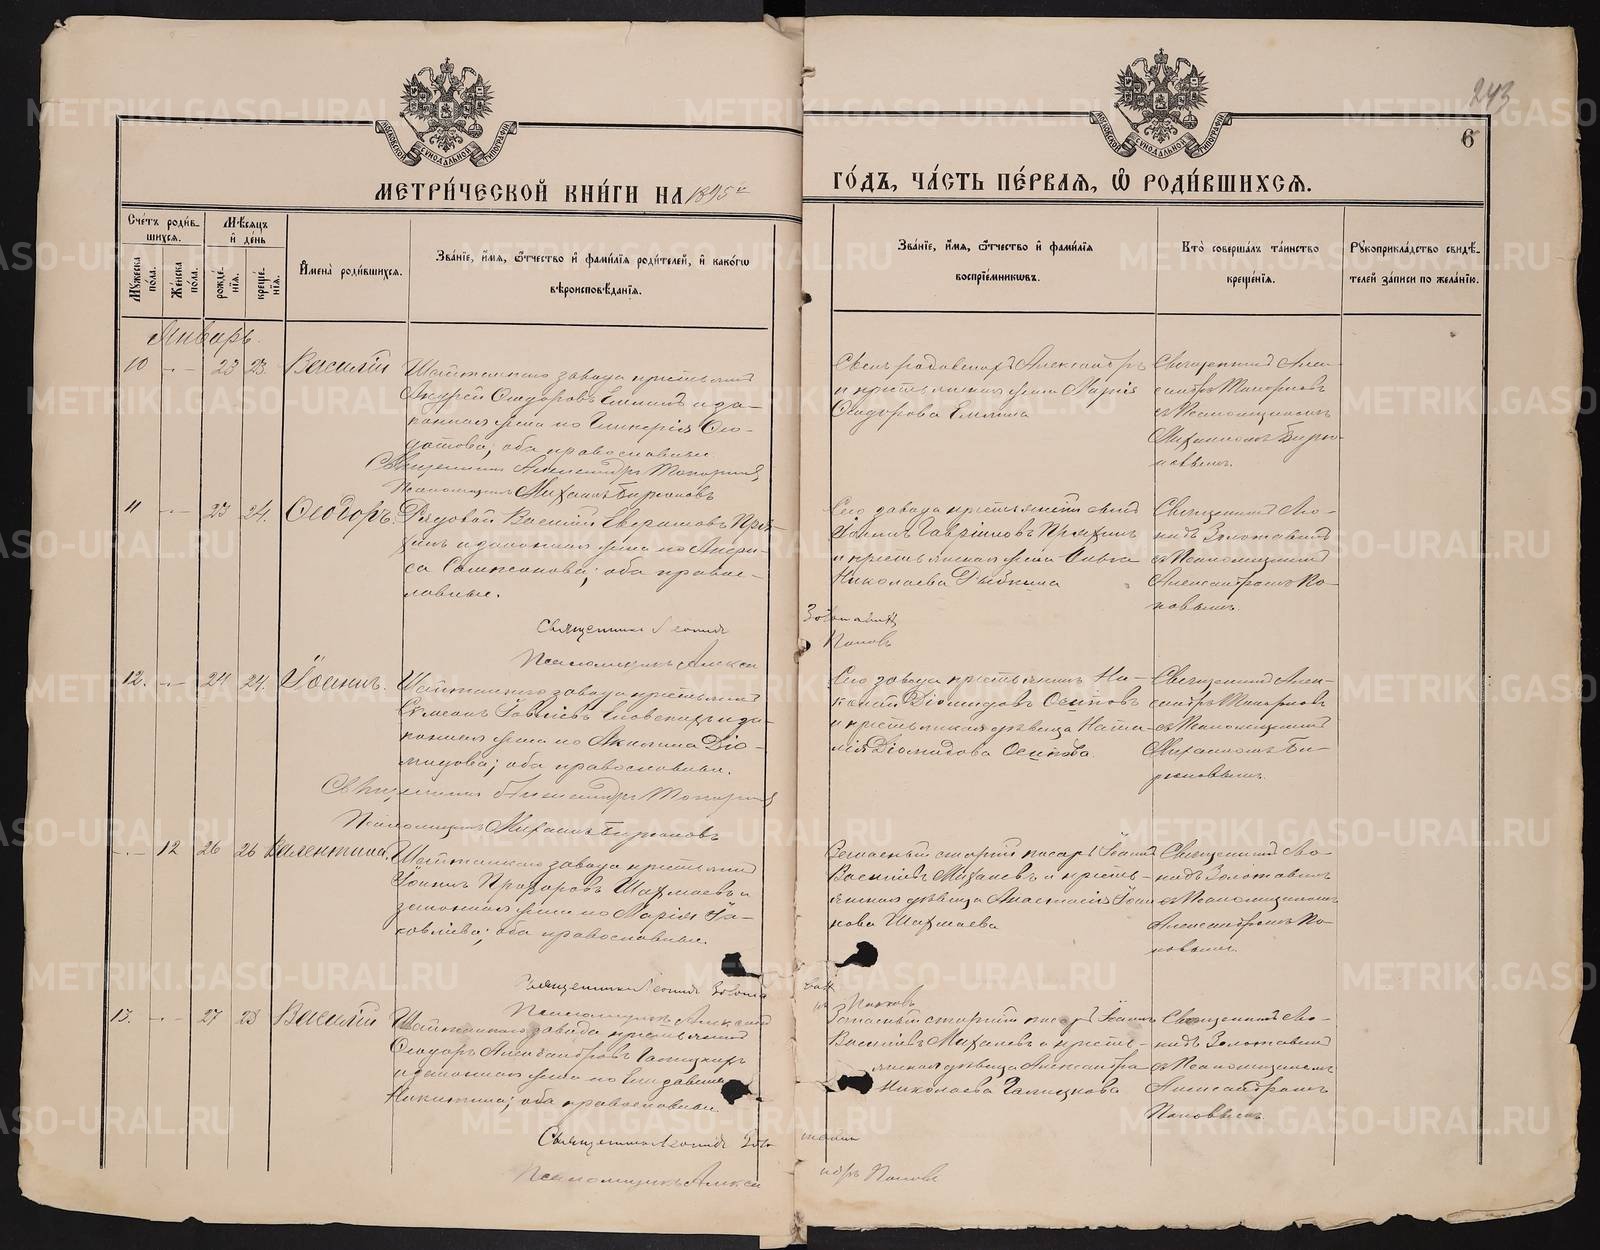 243
6
МЕТРИ́ЧЕСКОЙ КНИ́ГИ НА 1895й
ГО́ДЪ, ЧА́СТЬ ПЕ́РВАЯ, Ѽ РОДИ́ВШИХСЯ.
МОСКОВСКОЙ СИНОДАЛЬНОЙ ТИПОГРАФІИ
МОСКОВСКОЙ СИНОДАЛЬНОЙ ТИПОГРАФІИ
Сче́тъ роди́в-
шихся.
Мѣ́сяцъ
и҆ де́нь
Мꙋ́жеска по́ла.
Же́нска по́ла.
рожде́-
нїя.
креще́-
нїя.
И҆мена̀ роди́вшихся.
Зва́нїе, и҆́мя, ѻ҆́тчество и҆ фами́лїя роди́телей, и҆ како́гѡ
вѣроисповѣ́данїя.
Зва́нїе, и҆́мя, ѻ҆́тчество и҆ фами́лїя
воспрїе́мникѡвъ.
Кто̀ соверша́лъ та́инство
креще́нїя.
Рꙋкоприкла́дство свидѣ́-
телей за́писи по жела́нїю.
Январь.
10 -- 23 23 Василій
Шайтанскаго завода крестьянинъ
Андрей Ѳеодоровъ и за-
конная жена его Гликерія Ѳео-
дотова; оба православные
Священникъ Александръ Топорковъ
Псаломщикъ Михаилъ Бирюковъ
и крестьянская жена Марія
Ѳеодорова
Священникъ Алек-
сандръ Топорковъ
съ Псаломщикомъ
Михаиломъ Бирю-
ковымъ.
11 -- 23 24. Ѳеодоръ.
Рядовой Василій
и законная жена его
Самсонова; оба право-
славные.
Священникъ Леонидъ Золотавинъ
Псаломщикъ Алекса Поповъ
Того завода крестьянинъ
Іоаннъ Гавріиловъ Пряхинъ
и крестьянская жена Ольга
Николаева Рыбкина
Священникъ Лео-
нидъ Золотавинъ
съ Псаломщикомъ
Александромъ По-
повымъ.
12. -- 24 24. Іоаннъ.
Шайтанскаго завода крестьянинъ
Симеонъ Іовлевъ и за-
конная жена его Акилина Діо-
мидова; оба православные.
Священникъ Александръ Топорковъ
Псаломщикъ Михаилъ Бирюковъ
Того завода крестьянинъ Ни-
колай Діомидовъ Осиповъ
и крестьянская дѣвица Ната-
лія Діомидова Осипова.
Священникъ Алек-
сандръ Топорковъ
съ Псаломщикомъ
Михаиломъ Би-
рюковымъ.
-- 12 26 26 Валентина.
Шайтанскаго завода крестьянинъ
Іоаннъ Прохоровъ Шахмаевъ и
законная жена его Марія Іа-
ковлева; оба православные.
Священникъ Леонидъ Золотавинъ
Псаломщикъ Александръ Поповъ
Запасный старшій писарь Іоаннъ
Васильевъ Михалевъ и кресть-
янская дѣвица Анастасія Іоан-
нова Шахмаева
Священникъ Лео-
нидъ Золотавинъ
съ Псаломщикомъ
Александромъ По-
повымъ.
13. -- 27 28 Василій
Шайтанскаго завода крестьянинъ
Ѳеодоръ Александровъ Галицкихъ
и законная жена его Елизавета
Никитина; оба православные.
Священникъ Леонидъ Золотавинъ
Псаломщикъ Александръ Поповъ
Запасный старшій писарь Іоаннъ
Васильевъ Михалевъ и кресть-
янская дѣвица Александра
Николаева Галицкова
Священникъ Лео-
нидъ Золотавинъ
съ Псаломщикомъ
Александромъ
Поповымъ
METRIKI.GASO-URAL.RU